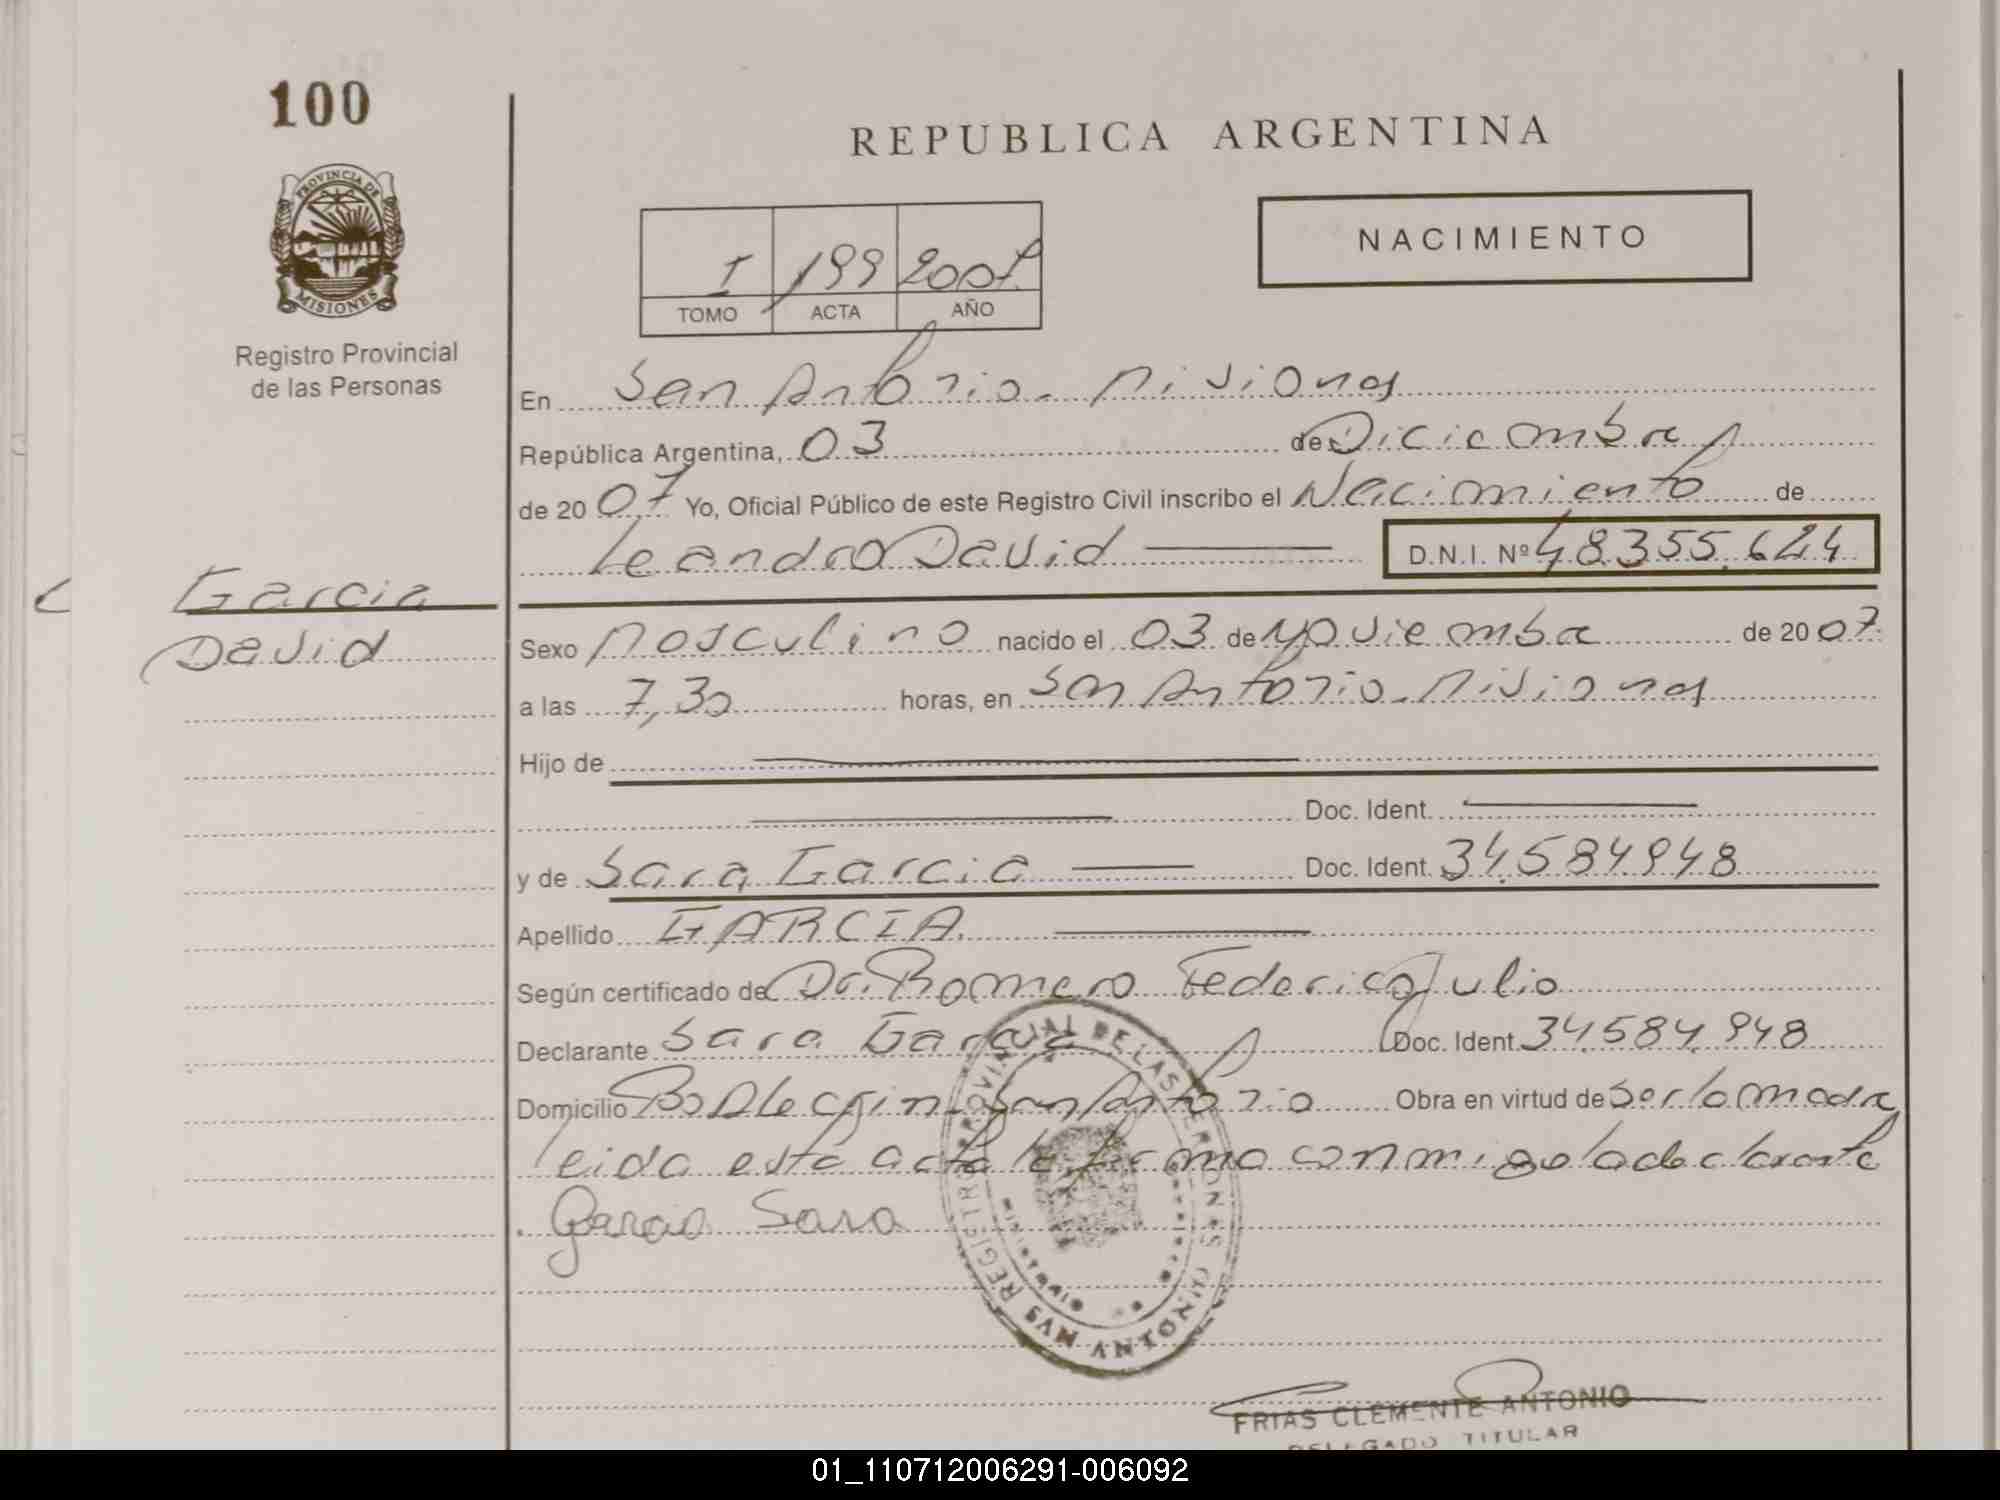 100
REPUBLICA ARGENTINA
PROVINCIA DE
MISIONES
NACIMIENTO
I 199 2007
TOMO ACTA AÑO
Registro Provincial
de las Personas
En San Antonio - Misiones
República Argentina, 03 de Diciembre
de 2007 Yo, Oficial Público de este Registro Civil inscribo el Nacimiento de
Leandro David D.N.I. Nº 48.355.624
Garcia
David
Sexo Masculino nacido el 03 de Noviembre de 2007
a las 7,30 horas, en San Antonio - Misiones
Hijo de
Doc. Ident.
y de Sara Garcia Doc. Ident. 34.584.948
Apellido GARCIA.
Según certificado de Dr. Romero Federico Julio
Declarante Sara Garcia Doc. Ident. 34.584.948
Domicilio San Antonio Obra en virtud de ser la madre
leida esta acta la firma conmigo la declarante
Garcia Sara
REGISTRO PROVINCIAL DE LAS PERSONAS
SAN ANTONIO
FRIAS CLEMENTE ANTONIO
DELEGADO TITULAR
01_110712006291-006092